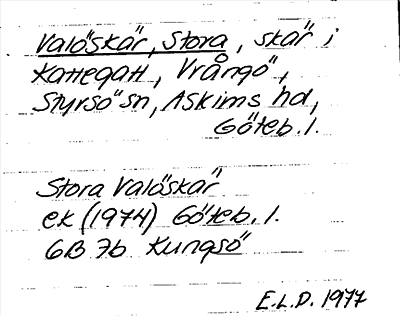 Valöskär, Stora, skär i
Kattegatt, Vrångö,
Styrsö sn, Askims hd,
Göteb. l.
Stora Valöskär
ek (1974) Göteb. l.
6B 7b Kungsö
E.L.D. 1977